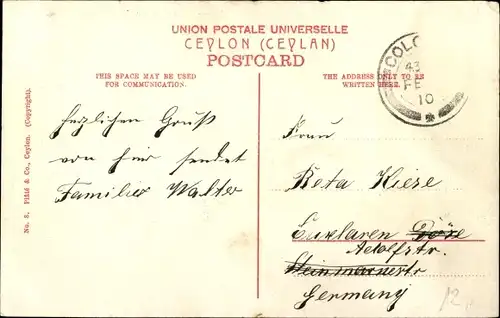 UNION POSTALE UNIVERSELLE
CEYLON (CEYLAN)
POSTCARD
THIS SPACE MAY BE USED
FOR COMMUNICATION.
THE ADDRESS ONLY TO BE
WRITTEN HERE.
COLO
FE
10
No. 8. Plâté & Co., Ceylon. (Copyright).
herzlichen Gruß
von hier sendet
Familie Walter
Frau
Kiese
Adolfstr.
Germany
12,